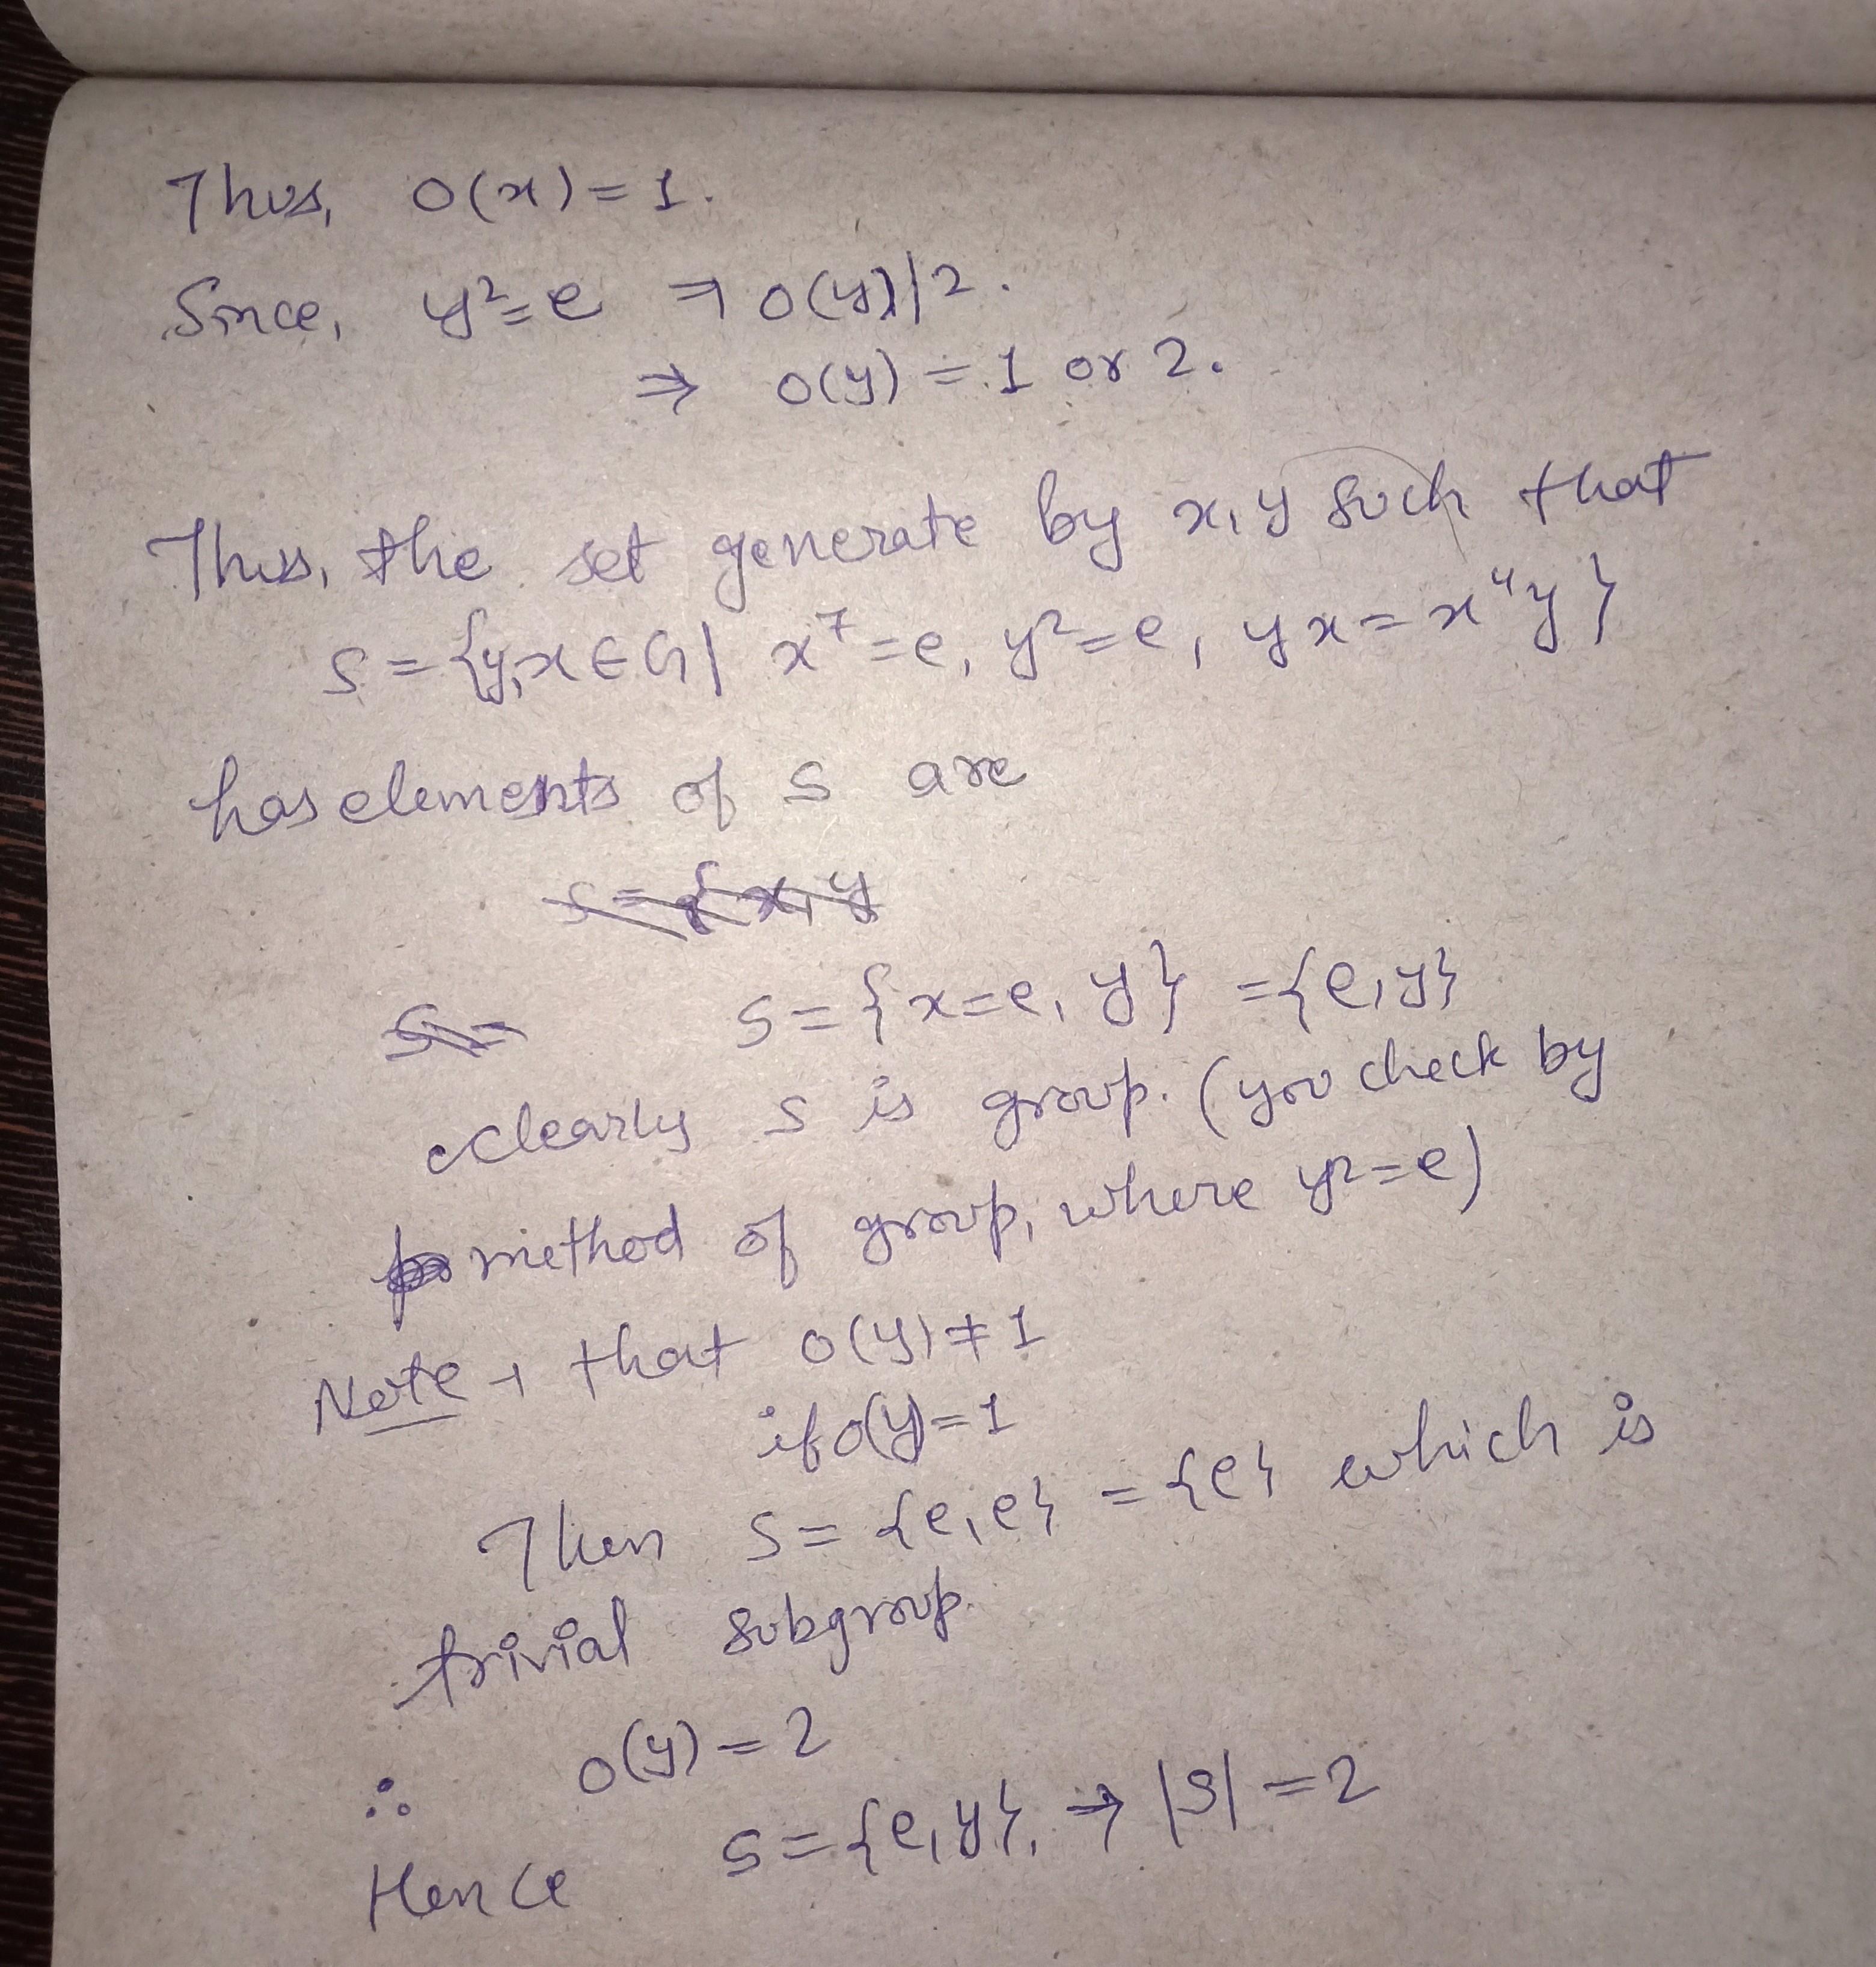 Thus, O(x) = 1.
Since, y² = e ⇒ O(y)|2.
⇒ O(y) = 1 or 2.
Thus, the set generate by x, y such that
S = {y, x ∈ G | x⁷ = e, y² = e, yx = x⁴y}
has elements of S are
S = {x, y
S = S = {x = e, y} = {e, y}
clearly S is group. (you check by
method of group, where y² = e)
Note → that O(y) ≠ 1
if O(y) = 1
Then S = {e, e} = {e} which is
trivial subgroup.
∴ O(y) = 2
Hence S = {e, y}, → |S| = 2